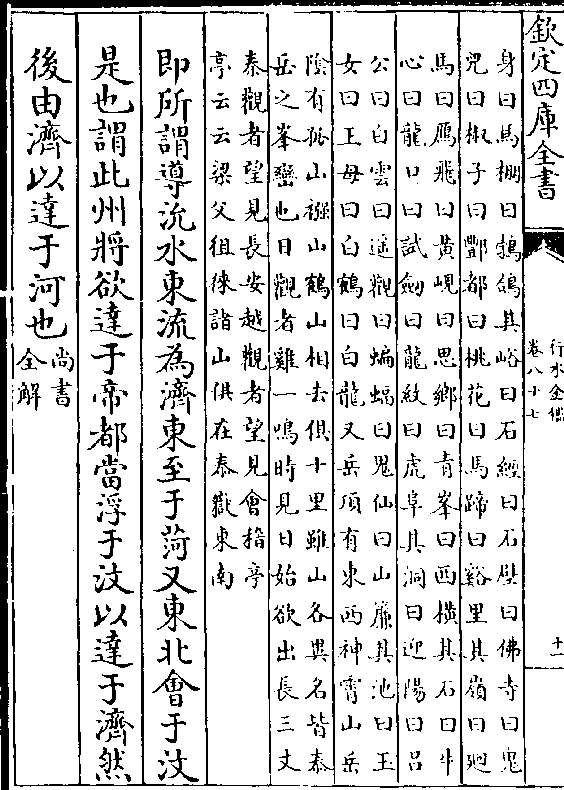 欽定四庫全書
行水金鑑
卷八十七
十一
身曰馬棚曰鵓鴿其峪曰石經曰石壁曰佛寺曰鬼
兒曰椒子曰酆都曰桃花曰馬蹄曰谿里其嶺曰廻
馬曰鴈飛曰黄峴曰思鄉曰青峯曰西橫其石曰牛
心曰龍口曰試劍曰龍紋曰虎阜其洞曰迎陽曰吕
公曰白雲曰遥觀曰蝙蝠曰鬼仙曰山簾其池曰玉
女曰王母曰白鶴曰白龍又岳頂有東西神霄山岳
陰有孤山襁山鶴山相去俱十里雖山各異名皆泰
岳之峯巒也日觀者雞一鳴時見日始欲出長三丈
秦觀者望見長安越觀者望見會稽亭
亭云云梁父徂徠諸山俱在泰嶽東南
即所謂導沇水東流為濟東至于菏又東北會于汶
是也謂此州將欲達于帝都當浮于汶以達于濟然
後由濟以達于河也
尚書
全解